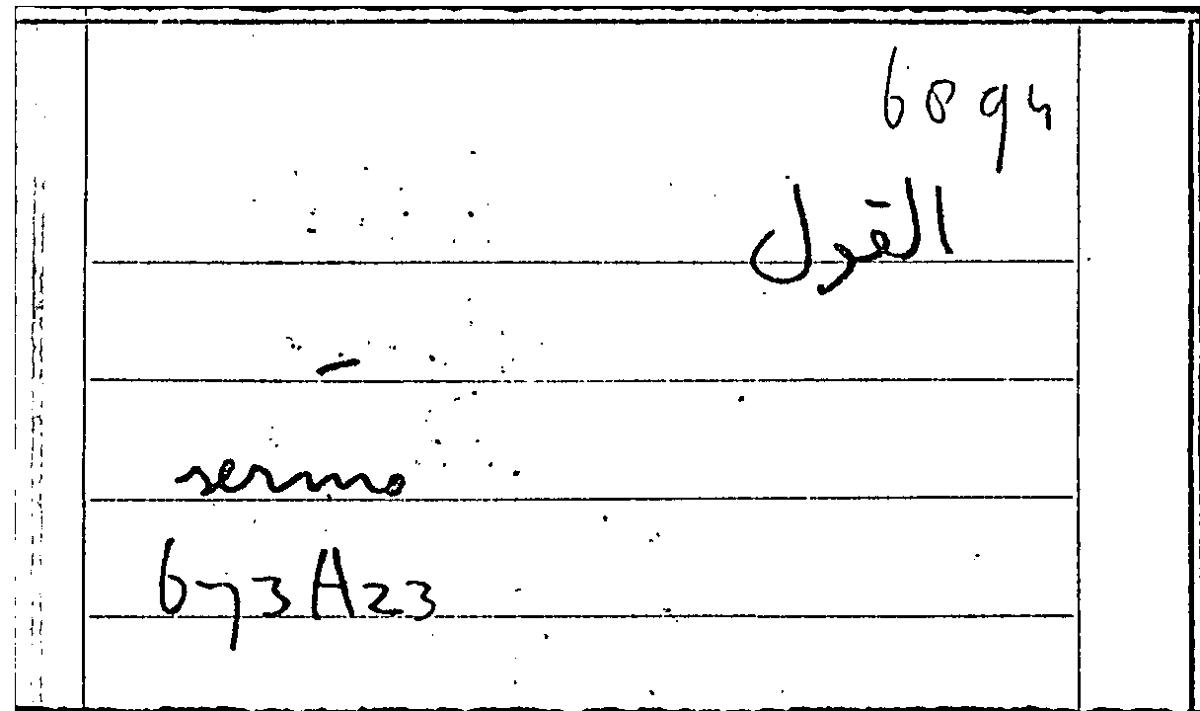 6894
القول
—
sermo
673A23